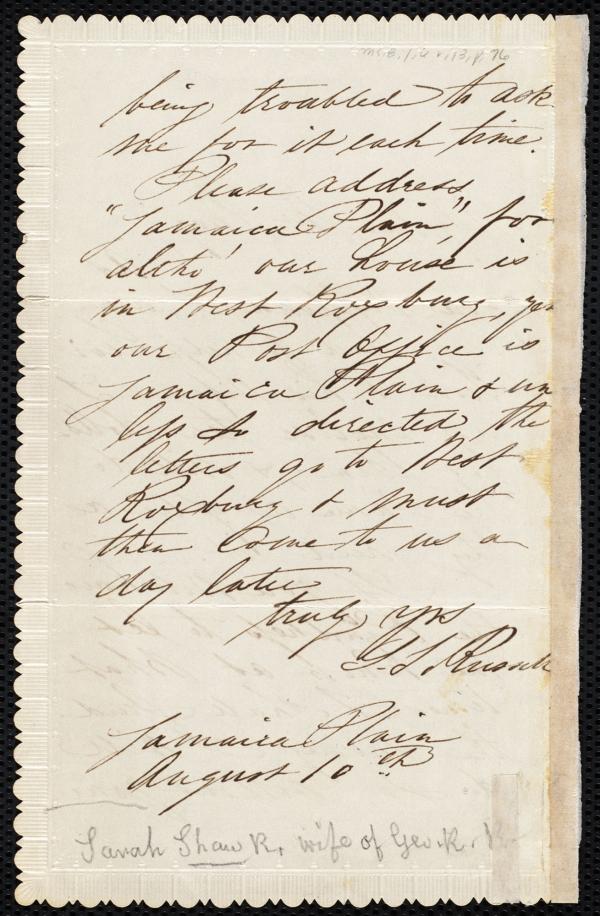 ms.B.1.6 v.13, p.76
being troubled to ask
me for it each time.
Please address
"Jamaica Plain", for
altho' our house is
in West Roxbury, yet
our Post Office is
Jamaica Plain & un
less so directed the
letters go to West
Roxbury & must
then come to us a
day later
truly yrs
S. S. Russell
Jamaica Plain
August 10th
Sarah Shaw R. wife of Geo. R. R.